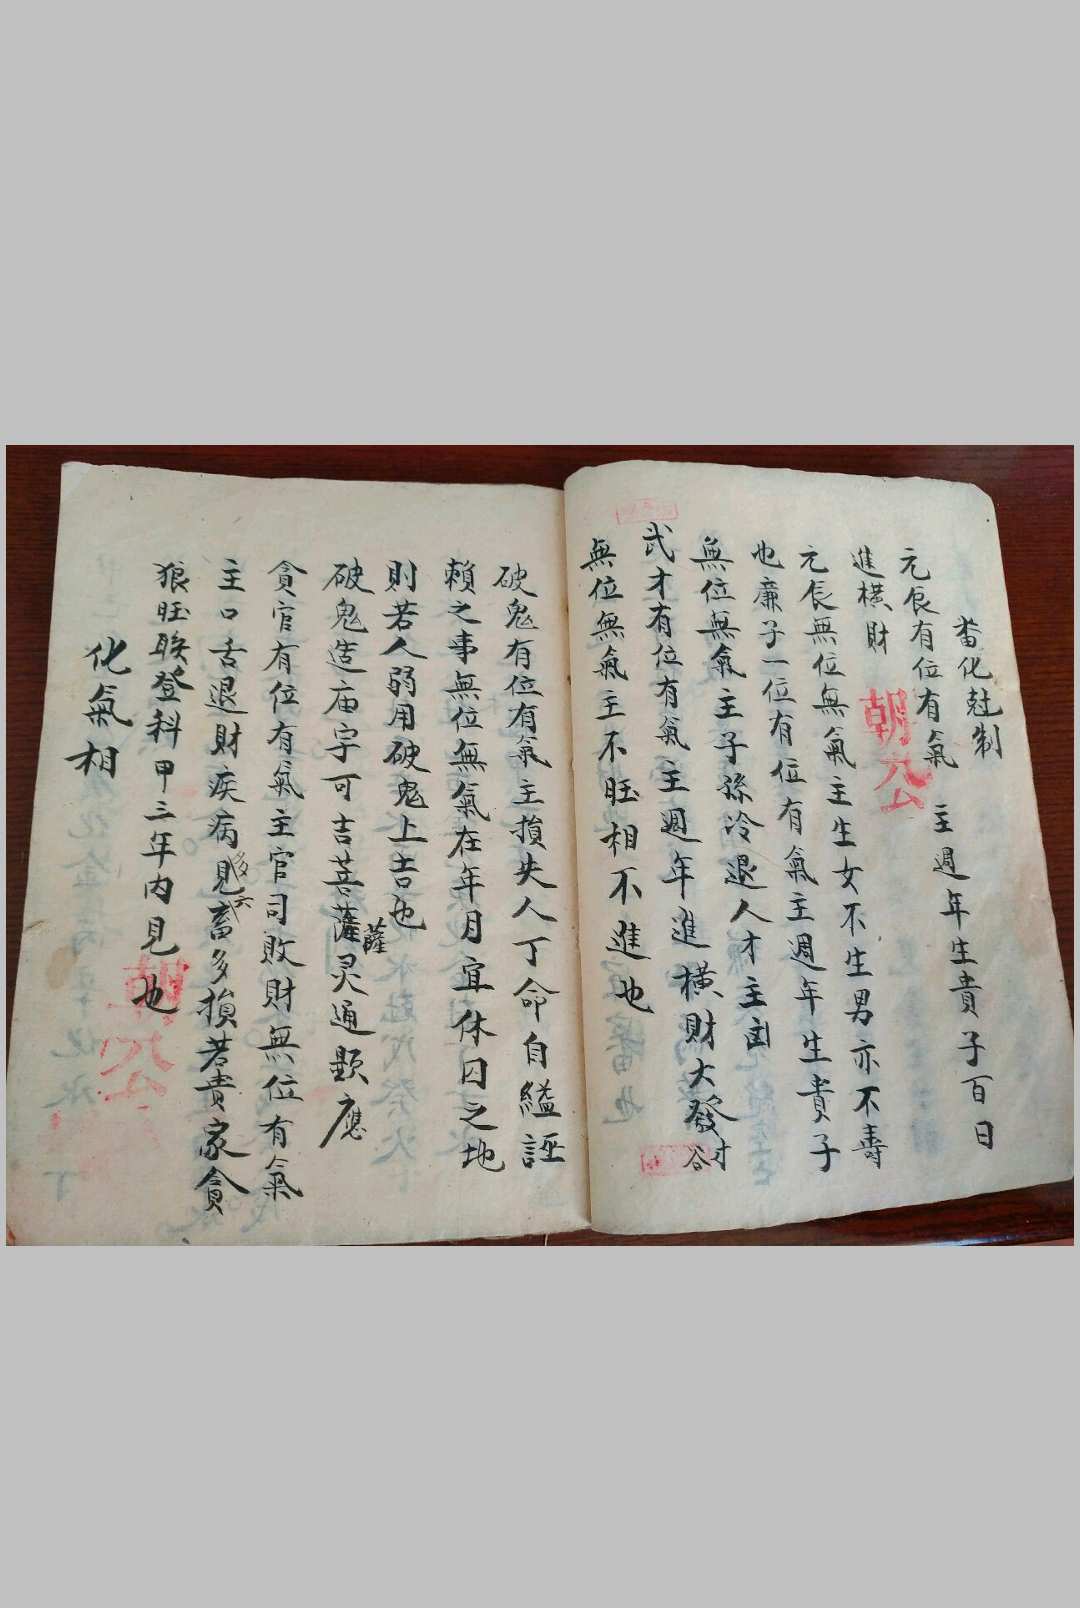 畨化尅制
元辰有位有氣　主週年生貴子百日
進橫財
元辰無位無氣主生女不生男亦不壽
也廉子一位有位有氣主週年生貴子
無位無氣主子孫冷退人才主凶
武才有位有氣主週年進橫財大發財谷
無位無氣主不旺相不進也
朝公
破鬼有位有氣主損失人丁命自縊誣
賴之事無位無氣在年月宜休囚之地
則若人弱用破鬼上吉也
破鬼造庙宇可吉菩薩灵通顕應
薩
貪官有位有氣主官司敗財無位有氣
主口舌退財疾病見畜多損若貴家貪
多六
狼旺联登科甲三年內見也
化氣相
朝公